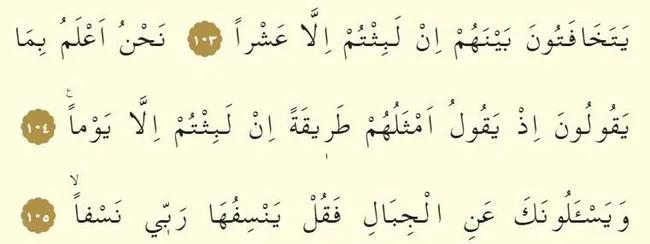 يَتَخَافَتُونَ بَيْنَهُمْ اِنْ لَبِثْتُمْ اِلَّا عَشْراً ﴿١٠٣﴾ نَحْنُ اَعْلَمُ بِمَا
يَقُولُونَ اِذْ يَقُولُ اَمْثَلُهُمْ طَرٖيقَةً اِنْ لَبِثْتُمْ اِلَّا يَوْماًۚ ﴿١٠٤﴾
وَيَسْـَٔلُونَكَ عَنِ الْجِبَالِ فَقُلْ يَنْسِفُهَا رَبّٖي نَسْفاًۙ ﴿١٠٥﴾